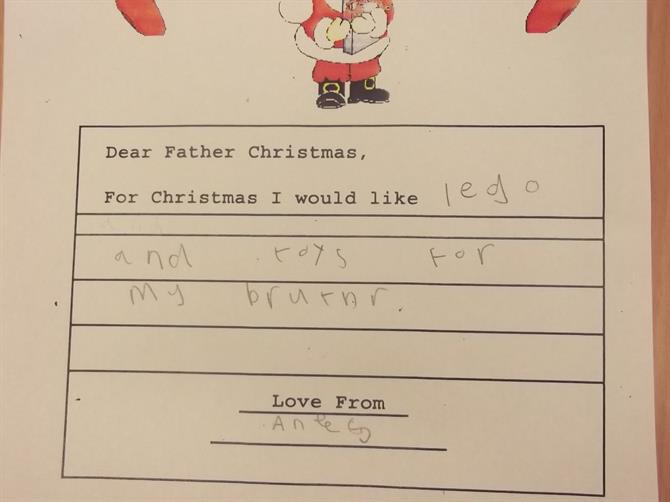 Dear Father Christmas,
For Christmas I would like lego
and
and toys for
my bruthr.
Love From